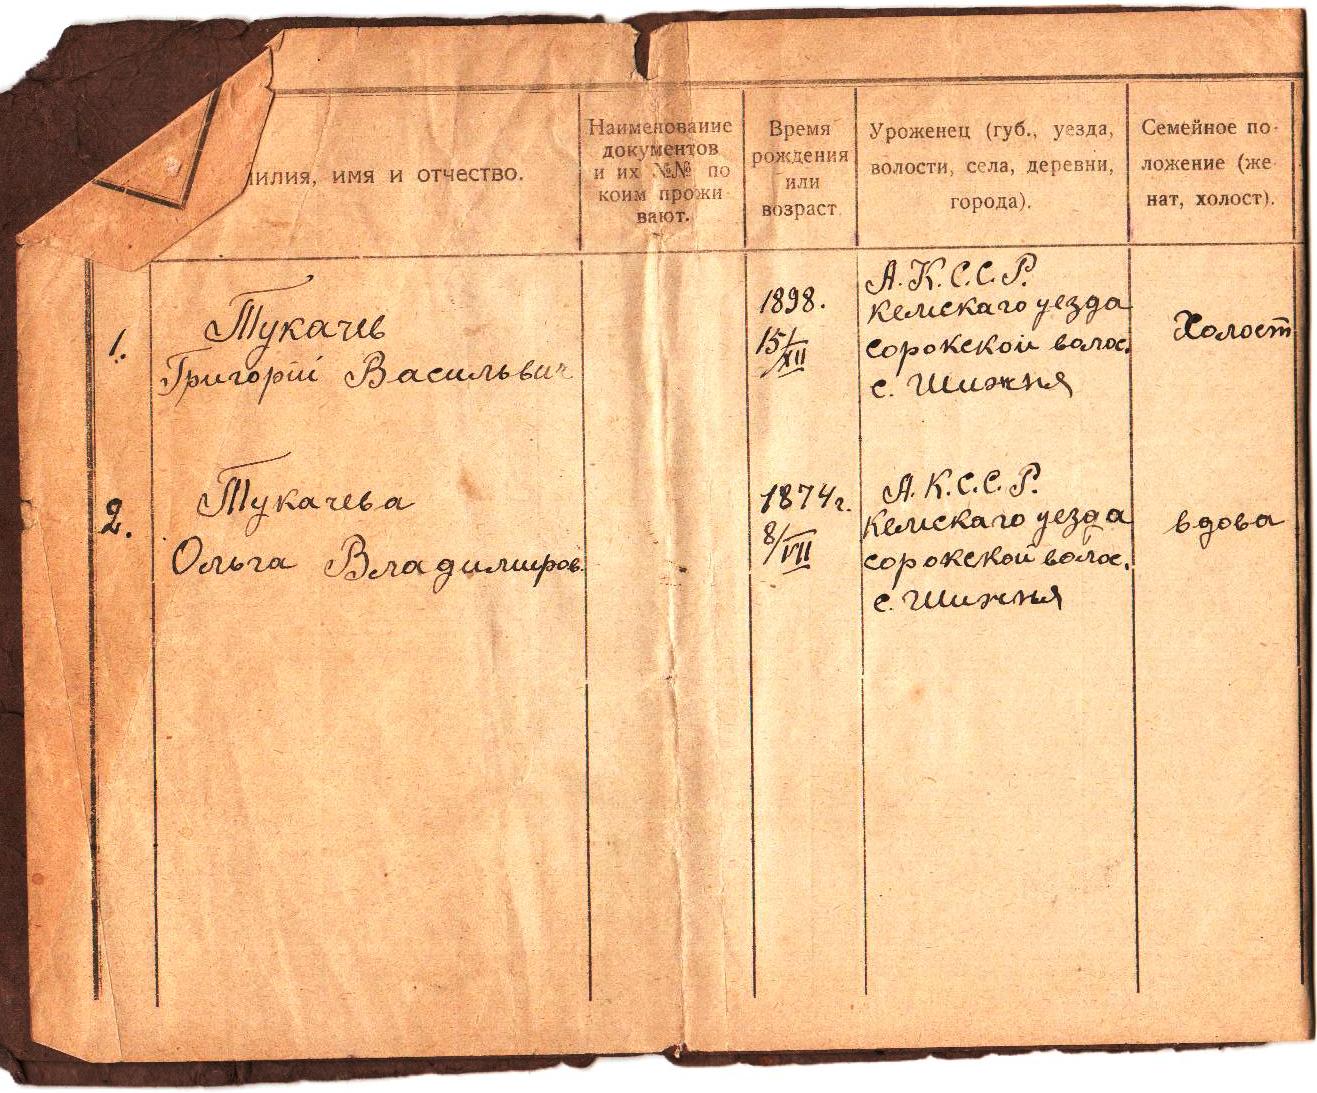 милия, имя и отчество.
Наименование
документов
и их №№ по
коим прожи-
вают.
Время
рождения
или
возраст
Уроженец (губ., уезда,
волости, села, деревни,
города).
Семейное по-
ложение (же-
нат, холост).
1.
Тукачев
Григорій Васильвич
1898.
15/XII
А.К.С.С.Р.
кемскаго уезда
сорокской волос.
с. Шижня
Холост
2.
Тукачева
Ольга Владимиров.
1874г.
8/VII
А.К.С.С.Р.
кемскаго уезда
сорокской волос.
с. Шижня
вдова